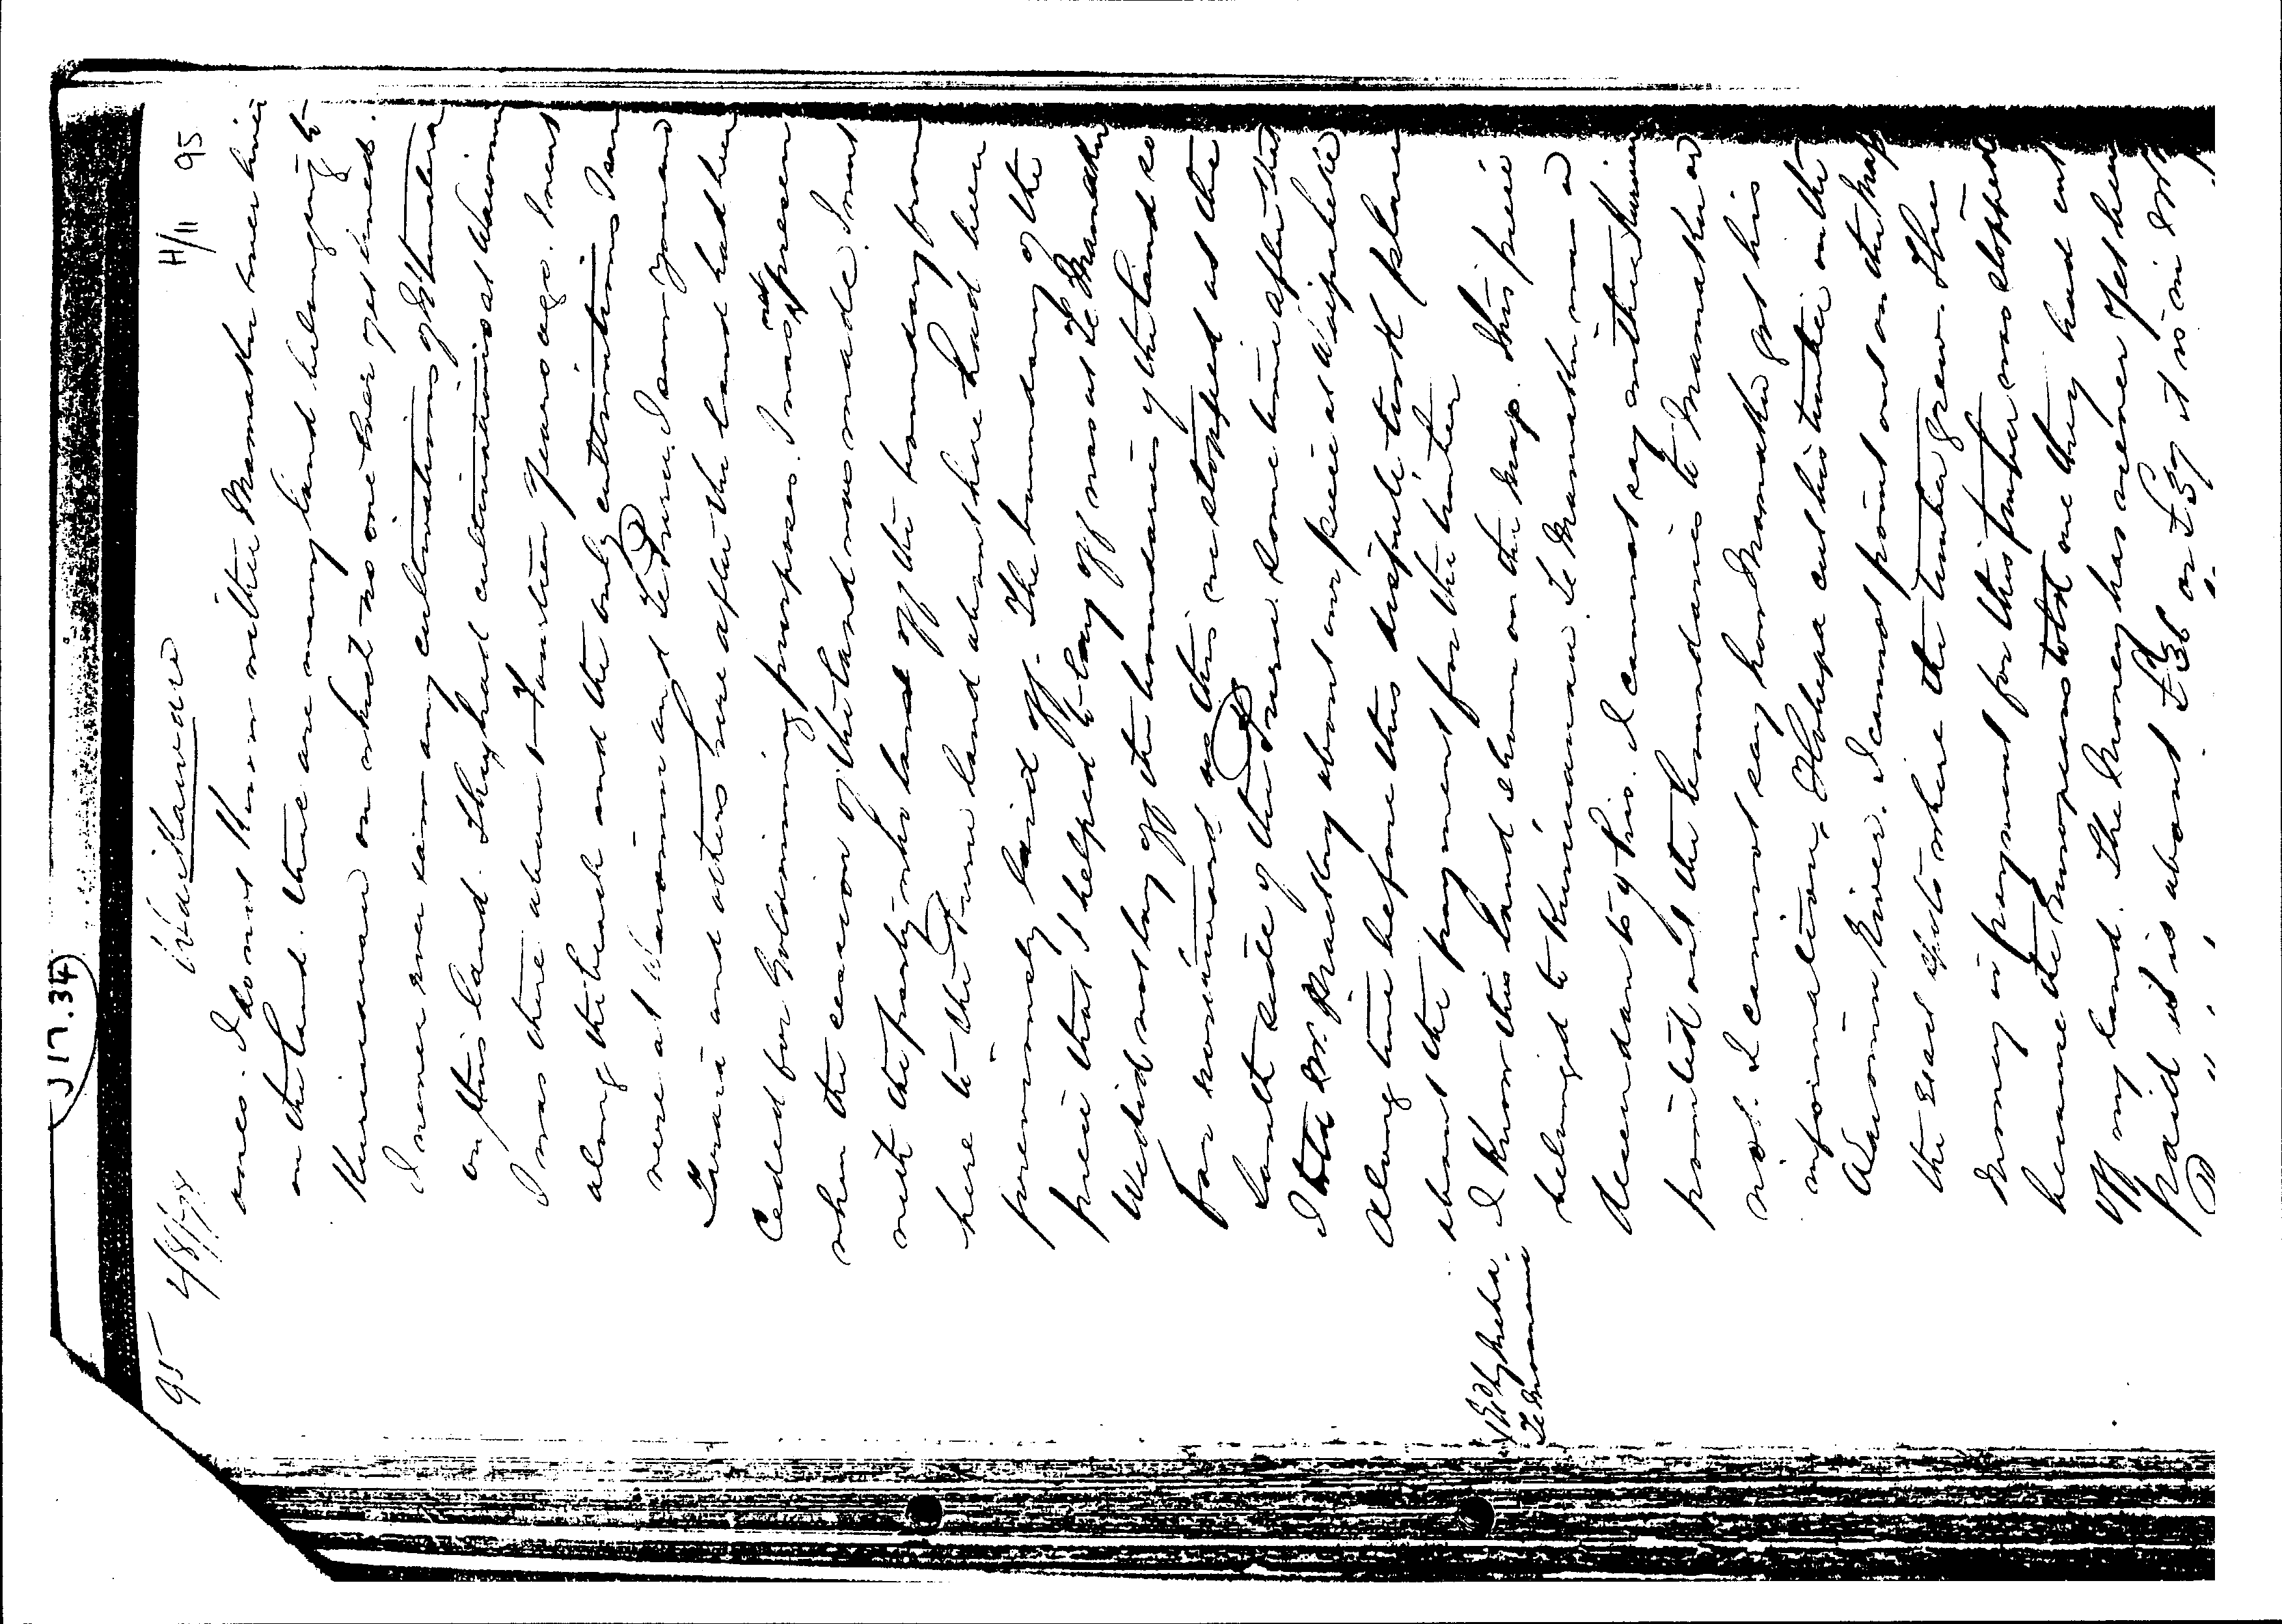 J 17.34
95 4/8/78 Waikawau H/11 95
ones. I do not know whether Mamaku ever lived
on the land. there are many land belonging to
Kurimanawa on what no one ever yet lived.
I never ever saw any cultivations of
on this land. They had cultivations at Wawim
I was there about 14 years ago. I went
along the beach and the only cultivations I saw
were at and Te Puru. I saw
and others here after the land had been
Ceded for Goldmining purposes. I was not present
when the cession of the land was made. I went
with the party who laid off the boundary from
here to the Puru land about here had been
previously laid off. The boundary of the
piece that I helped to lay off was at Te Mamaku
We did not lay off the boundaries of the land so
far inwards as this we stopped at the
South side of the Puru some time after that
I told Mr. Mackay about our piece at
A long time before this dispute took place
about the payment for the timber
I know this land shown on the map. this piece
belonged to Kurimanawa. Te Mamaku was a
descendant of his. I cannot say
pointed out the boundaries to Mamaku or
not. I cannot say how Mamaku got his
information. Hohepa cut his timber on the
River. I cannot point out on the Map
the exact spots where the timber grew. The
Money in payment for this timber was stopped
because the Europeans told me they had cut
off my land. The Money has never yet been
paid it is about £36 or £37 it is in